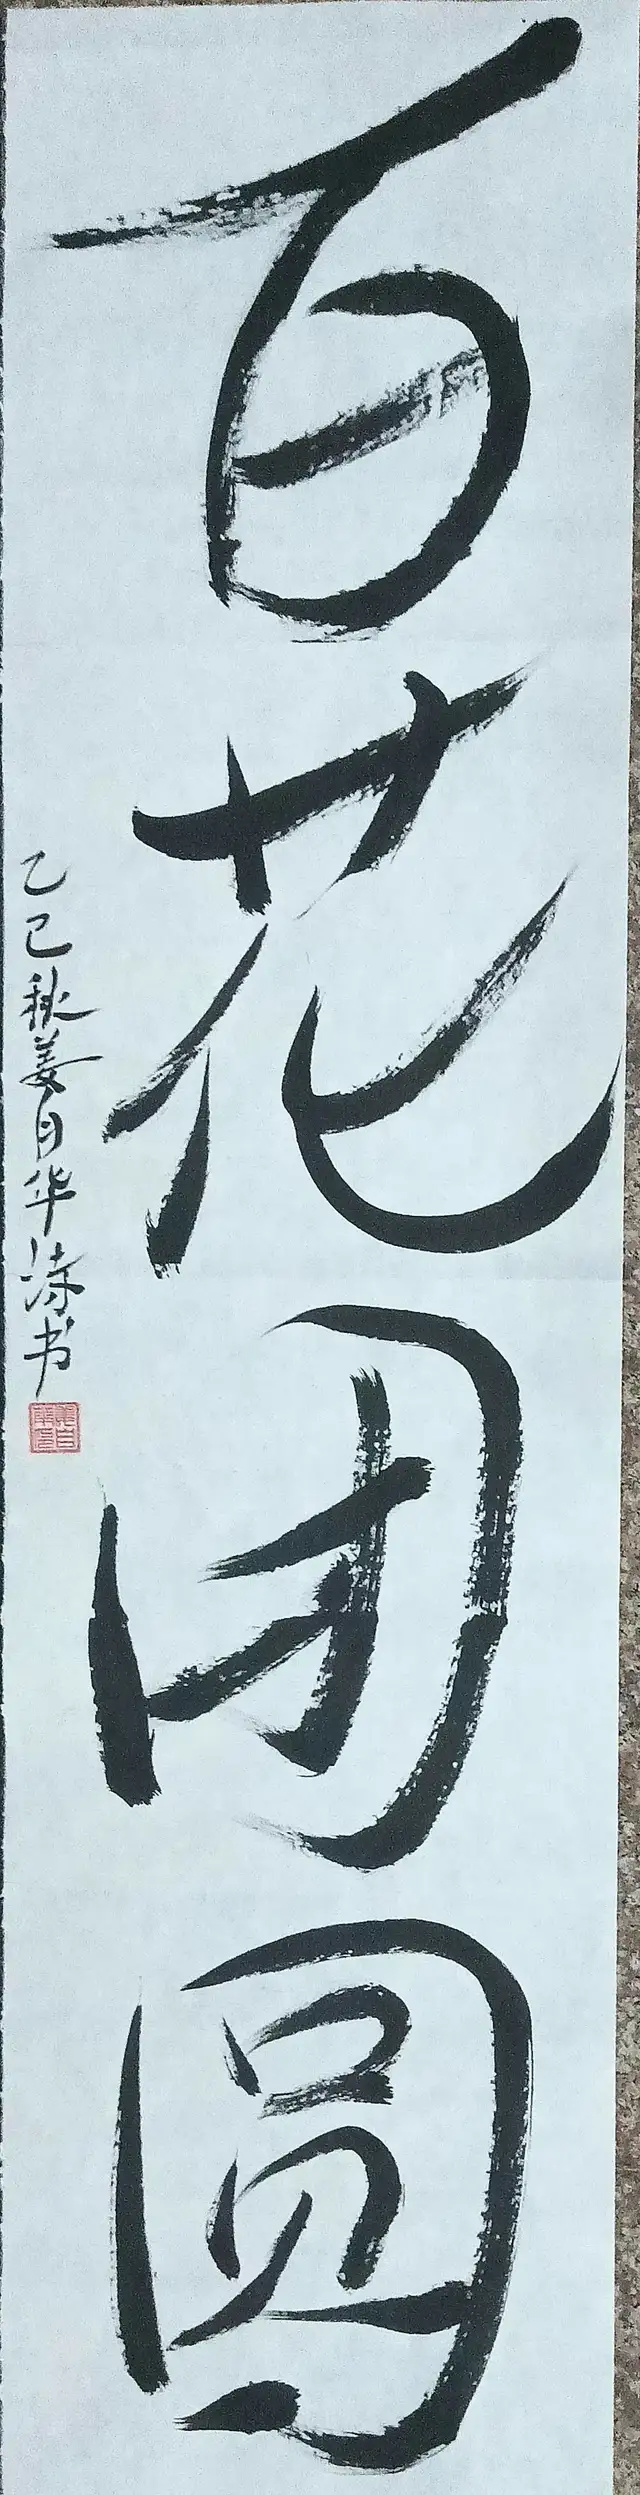 百花团圆
乙巳秋姜自华诗书